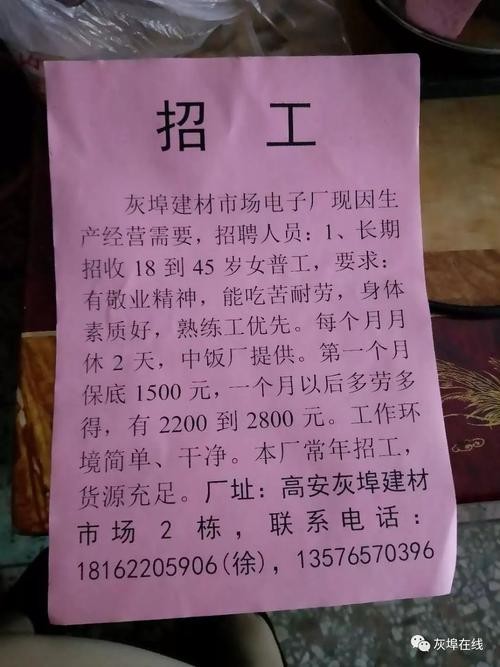 招 工
灰埠建材市场电子厂现因生
产经营需要，招聘人员：1、长期
招收 18 到 45 岁女普工，要求：
有敬业精神，能吃苦耐劳，身体
素质好，熟练工优先。每个月月
休 2 天，中饭厂提供。第一个月
保底 1500 元，一个月以后多劳多
得，有 2200 到 2800 元。工作环
境简单、干净。本厂常年招工，
货源充足。厂址：高安灰埠建材
市场 2 栋，联系电话：
18162205906(徐)，13576570396
灰埠在线